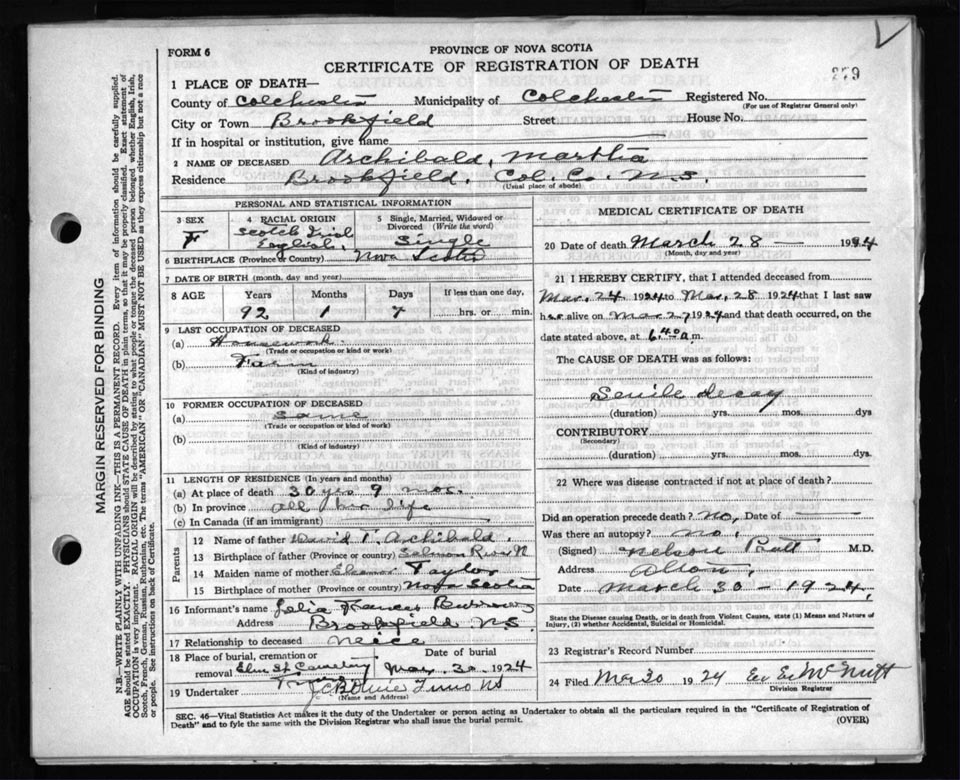 FORM 6
PROVINCE OF NOVA SCOTIA
CERTIFICATE OF REGISTRATION OF DEATH
279
1 PLACE OF DEATH—
County of Colchester Municipality of Colchester Registered No.
(For use of Registrar General only)
City or Town Brookfield Street House No.
If in hospital or institution, give name
2 NAME OF DECEASED Archibald, Martha
Residence Brookfield, Col. Co. N.S.
(Usual place of abode)
PERSONAL AND STATISTICAL INFORMATION
3 SEX
F
4 RACIAL ORIGIN
Scotch Irish
English,
5 Single, Married, Widowed or
Divorced (Write the word)
Single
6 BIRTHPLACE (Province or Country) Nova Scotia
7 DATE OF BIRTH (month, day and year)
8 AGE Years Months Days If less than one day,
92 1 7 hrs. or min.
9 LAST OCCUPATION OF DECEASED
(a) Housework
(Trade or occupation or kind or work)
(b) Farm
(Kind of industry)
10 FORMER OCCUPATION OF DECEASED
(a) Same
(Trade or occupation or kind or work)
(b)
(Kind of industry)
11 LENGTH OF RESIDENCE (In years and months)
(a) At place of death 30 yrs 9 mos.
(b) In province all her life
(c) In Canada (if an immigrant)
Parents
12 Name of father David T. Archibald.
13 Birthplace of father (Province or country) Salmon River N
14 Maiden name of mother Eleanor Taylor
15 Birthplace of mother (Province or country) Nova Scotia
16 Informant's name Frances Burrows
Address Brookfield N.S.
17 Relationship to deceased Neice
18 Place of burial, cremation or removal Elm St Cemetery Truro
Date of burial
May 30 1924
19 Undertaker Truro NS
(Name and Address)
MEDICAL CERTIFICATE OF DEATH
20 Date of death March 28 — 1924
(Month, day and year)
21 I HEREBY CERTIFY, that I attended deceased from
Mar. 24 1924 to Mar. 28 1924 that I last saw
her alive on Mar 27 1924 and that death occurred, on the
date stated above, at 6.40 a.m.
The CAUSE OF DEATH was as follows:
Senile decay
(duration) yrs. mos. dys
CONTRIBUTORY
(Secondary)
(duration) yrs. mos. dys.
22 Where was disease contracted if not at place of death?
Did an operation precede death? no, Date of —
Was there an autopsy? no,
(Signed) Nelson Pratt M.D.
Address Alton,
Date March 30 - 1924,
State the Disease causing Death, or in death from Violent Causes, state (1) Means and Nature of
Injury, (2) whether Accidental, Suicidal or Homicidal.
23 Registrar's Record Number
24 Filed Mar 30 1924 McNutt
Division Registrar
SEC. 46—Vital Statistics Act makes it the duty of the Undertaker or person acting as Undertaker to obtain all the particulars required in the "Certificate of Registration of
Death" and to fyle the same with the Division Registrar who shall issue the burial permit. (OVER)
MARGIN RESERVED FOR BINDING
N.B.—WRITE PLAINLY WITH UNFADING INK—THIS IS A PERMANENT RECORD. Every item of information should be carefully supplied.
AGE should be stated EXACTLY. PHYSICIANS should STATE CAUSE OF DEATH in plain terms, so that it may be properly classified. Exact statement of
OCCUPATION is very important. RACIAL ORIGIN will be described by stating to what people or tongue the deceased person belonged whether English, Irish,
Scotch, French, German, Russian, Ruthenian, etc. The terms "AMERICAN" OR "CANADIAN" MUST NOT BE USED as they express citizenship but not a race
or people. See instructions on back of Certificate.